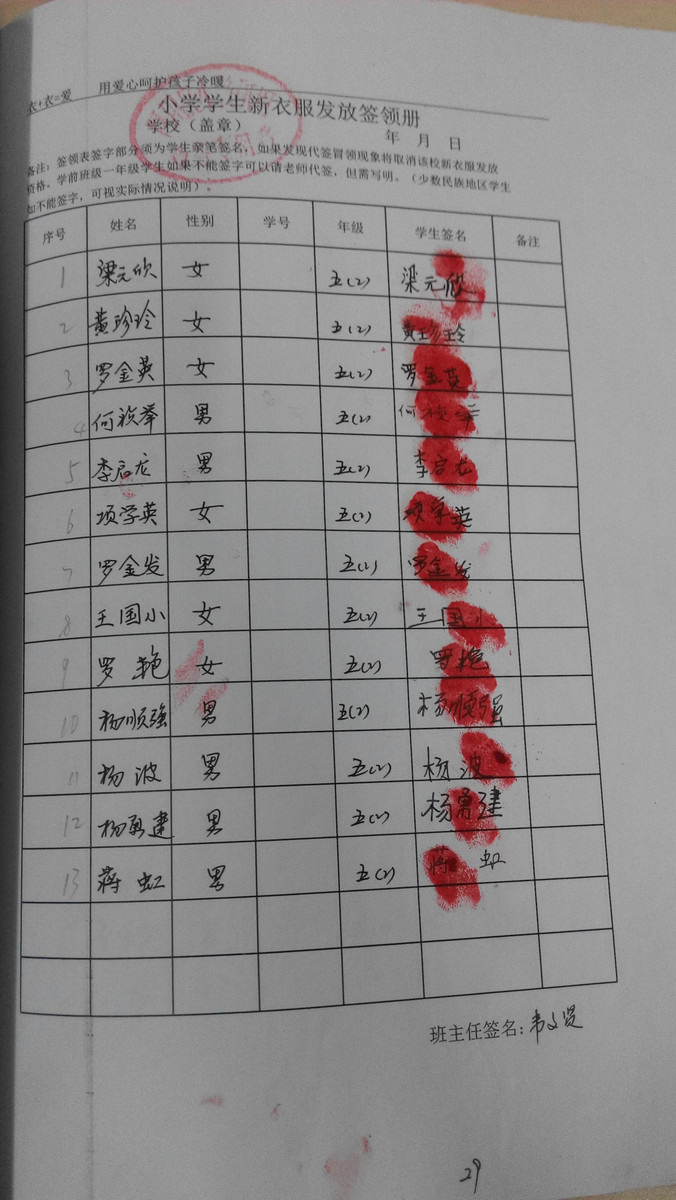 衣+衣=爱 用爱心呵护孩子冷暖
小学学生新衣服发放签领册
学校（盖章） 年 月 日
备注：签领表签字部分须为学生亲笔签名，如果发现代签冒领现象将取消该校新衣服发放
资格。学前班级一年级学生如果不能签字可以请老师代签，但需写明。（少数民族地区学生
如不能签字，可视实际情况说明）。
序号 姓名 性别 学号 年级 学生签名 备注
1 梁元欣 女 五(2) 梁元欣
2 黄珍玲 女 五(2) 黄珍玲
3 罗金英 女 五(2) 罗金英
4 何祯举 男 五(2) 何祯举
5 李启龙 男 五(2) 李启龙
6 项学英 女 五(2) 项学英
7 罗金发 男 五(2) 罗金发
8 王国小 女 五(2) 王国小
9 罗艳 女 五(2) 罗艳
10 杨顺强 男 五(2) 杨顺强
11 杨波 男 五(2) 杨波
12 杨勇建 男 五(2) 杨勇建
13 蒋虹 男 五(2) 蒋虹
班主任签名：韦文贤
29